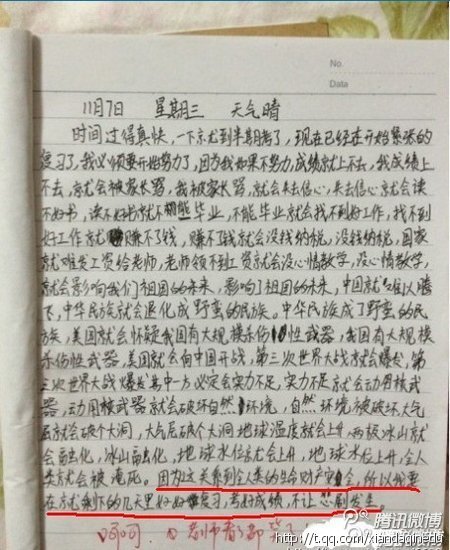 No.
Data
11月7日 星期三 天气晴
时间过得真快,一下京尤到半期考了,现在已经在开始紧张的
复习了,我必须要开始努力了,因为我如果不努力,成绩就上不去,我成绩上
不去,就会被家长骂,我被家长骂,就会失去信心,失去信心就会读
不好书,读不好书就不能毕业,不能毕业就会找不到好工作,找不到
好工作就赚不了钱,赚不了钱就会没钱纳税,没钱纳税,国家
就难发工资给老师,老师领不到工资就会没心情教学,没心情教学,
就会影响我们祖国的未来,影响了祖国的未来,中国就难以腾
飞,中华民族就会退化成野蛮的民族。中华民族成了野蛮的民
族,美国就会怀疑我国有大规模杀伤性武器,我国有大规模
杀伤性武器,美国就会向中国开战,第三次世界大战就会爆发,第
三次世界大战爆发其中一方必定会实力不足,实力不足就会动用核武
器,动用核武器就会破坏自然环境,自然环境被破坏大气
层就会破个大洞,大气层破个大洞地球温度就会上升,两极冰山就
会融化,冰山融化,地球水位就会上升,地球水位上升,全人
类就会被淹死。因为这关系到全人类的生命财产安全,所以我要
在就剩下的几天里好好复习,考好成绩,不让悲剧发生
呵呵
老师看了都
腾讯微博
http://t.qq.com/xiandaqinedu